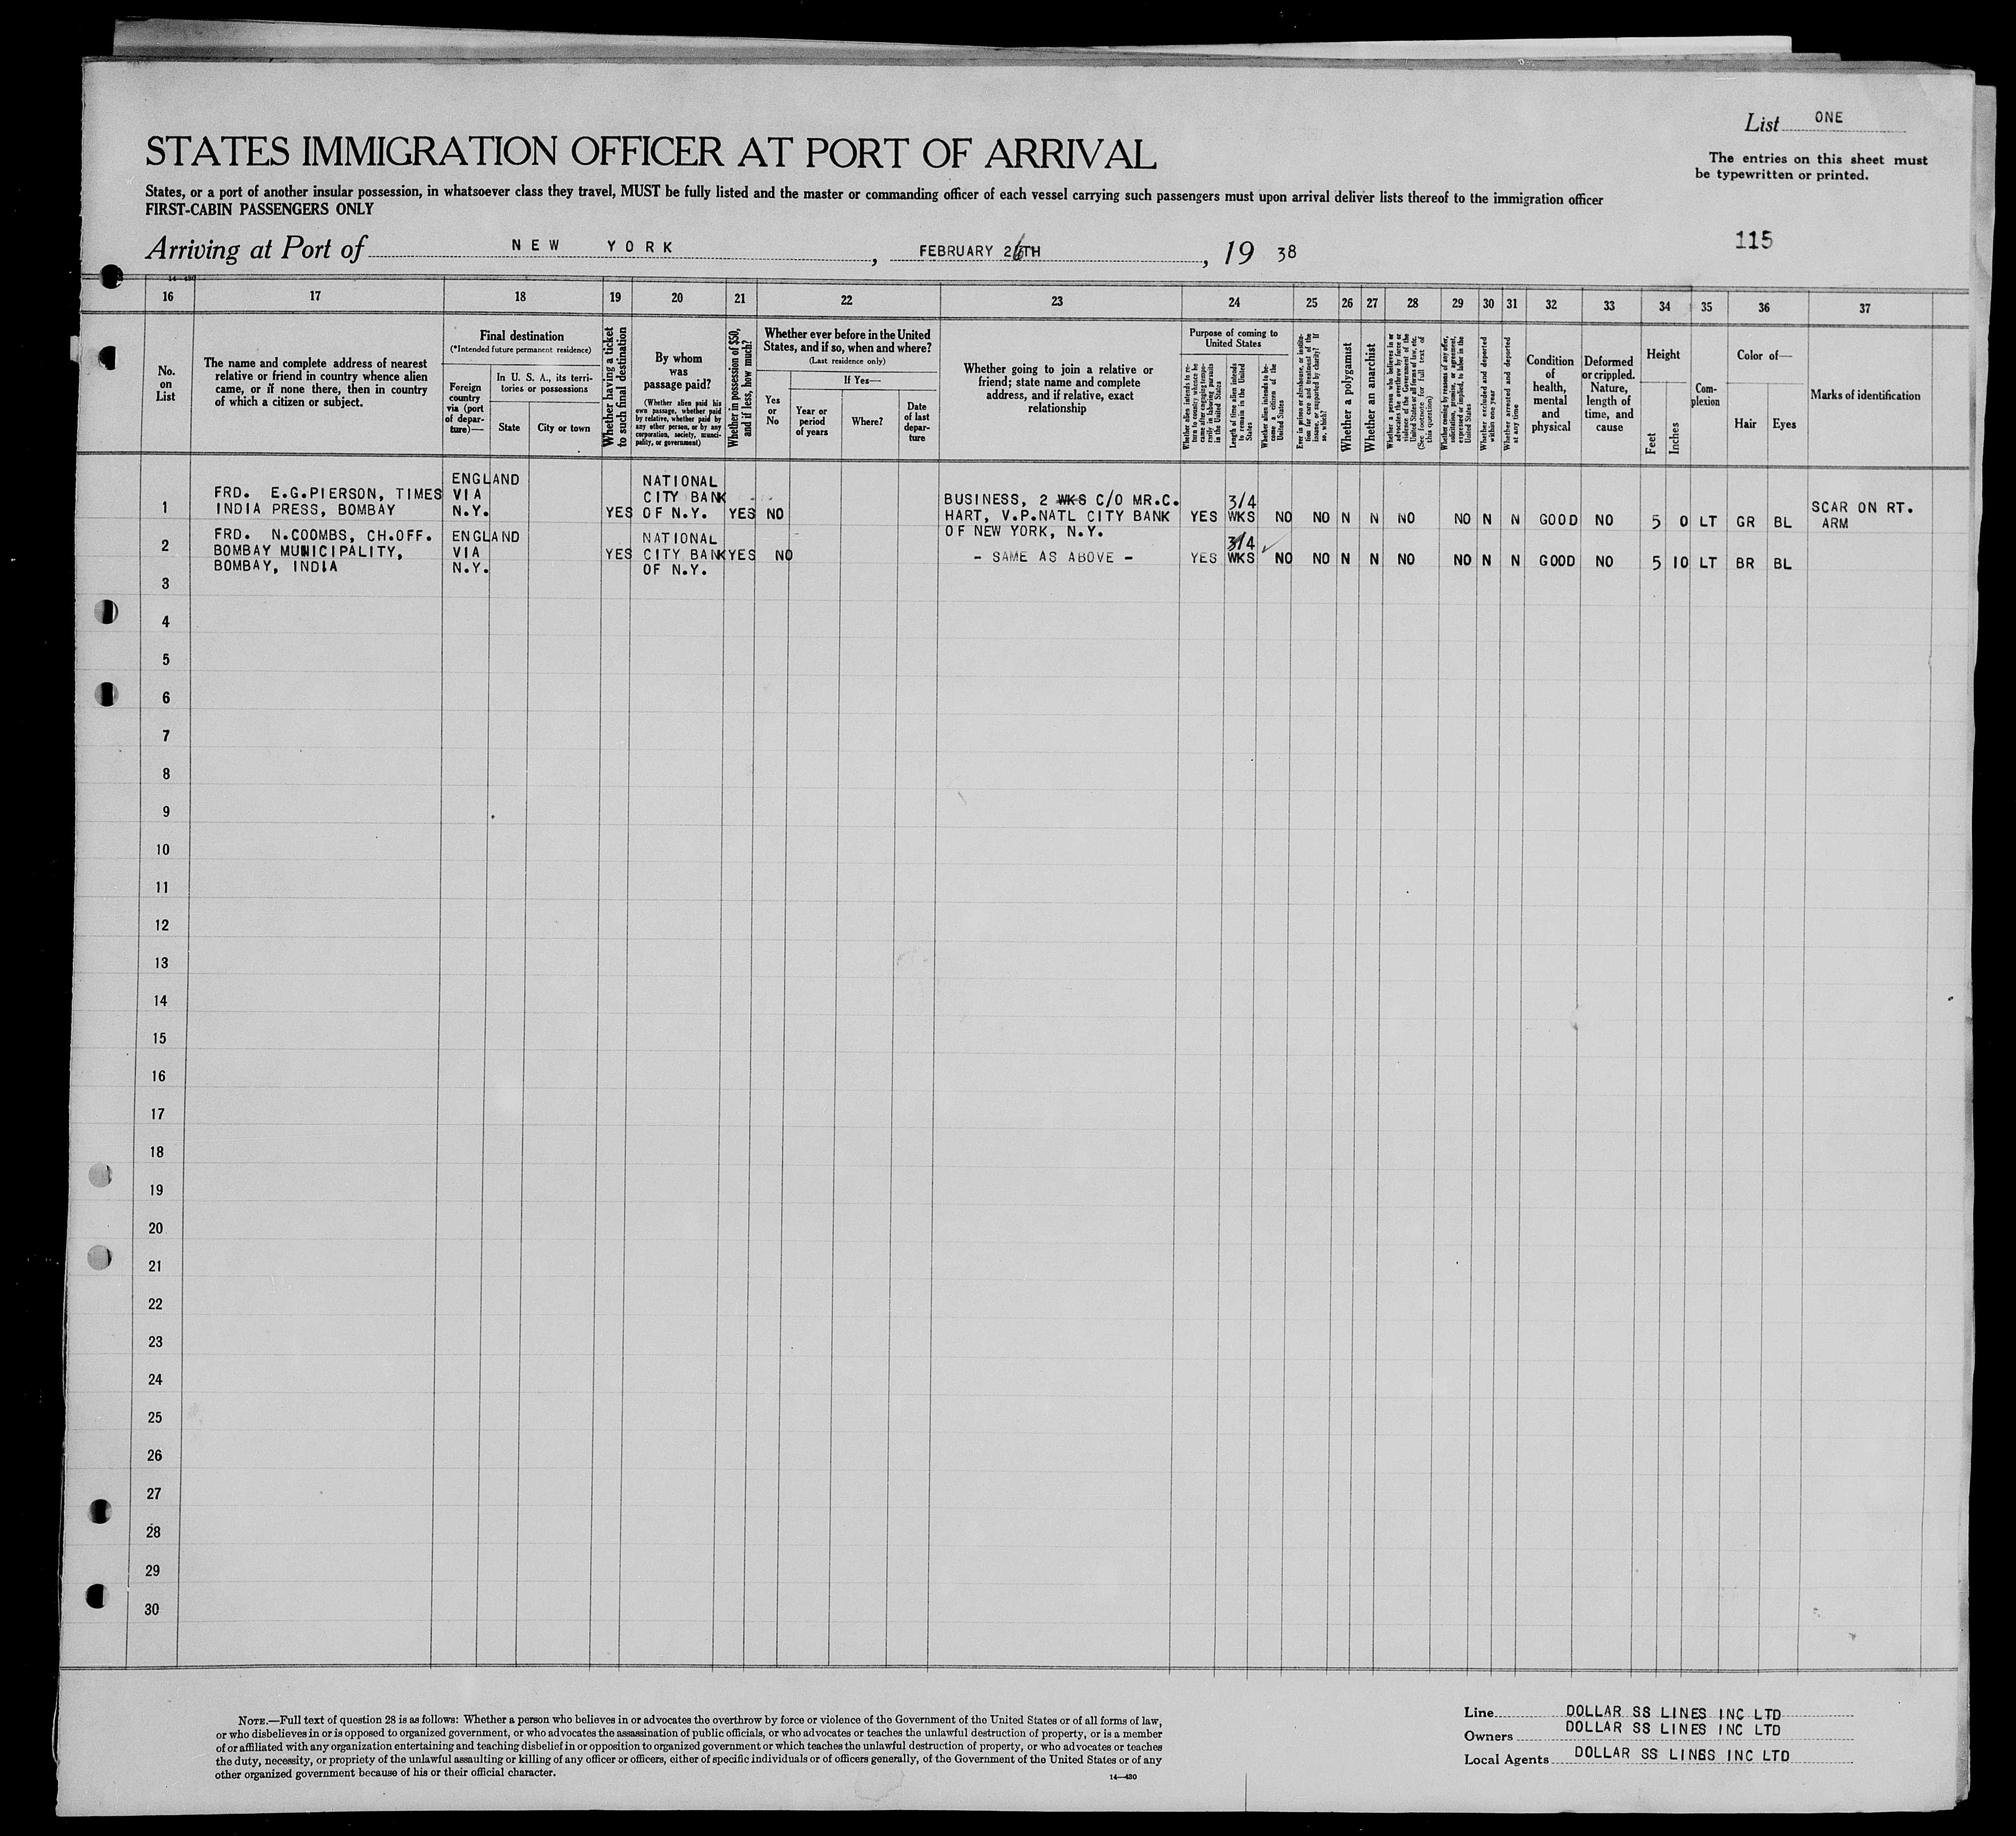 List ONE
The entries on this sheet must
be typewritten or printed.
STATES IMMIGRATION OFFICER AT PORT OF ARRIVAL
States, or a port of another insular possession, in whatsoever class they travel, MUST be fully listed and the master or commanding officer of each vessel carrying such passengers must upon arrival deliver lists thereof to the immigration officer
FIRST-CABIN PASSENGERS ONLY
115
Arriving at Port of NEW YORK, FEBRUARY 26TH, 19 38
14-430
16 17 18 19 20 21 22 23 24 25 26 27 28 29 30 31 32 33 34 35 36 37
No.
on
List
The name and complete address of nearest
relative or friend in country whence alien
came, or if none there, then in country
of which a citizen or subject.
Final destination
(*Intended future permanent residence)
Foreign
country
via (port
of depar-
ture)—
In U. S. A., its terri-
tories or possessions
State
City or town
Whether having a ticket
to such final destination
By whom
was
passage paid?
(Whether alien paid his
own passage, whether paid
by relative, whether paid by
any other person, or by any
corporation, society, munici-
pality, or government)
Whether in possession of $50,
and if less, how much?
Whether ever before in the United
States, and if so, when and where?
(Last residence only)
Yes
or
No
If Yes—
Year or
period
of years
Where?
Date
of last
depar-
ture
Whether going to join a relative or
friend; state name and complete
address, and if relative, exact
relationship
Purpose of coming to
United States
Whether alien intends to re-
turn to country whence he
came after engaging tempo-
rarily in laboring pursuits
in the United States
Length of time alien intends
to remain in the United
States
Whether alien intends to be-
come a citizen of the
United States
Ever in prison or almshouse, or institu-
tion for care and treatment of the
insane, or supported by charity? If
so, which?
Whether a polygamist
Whether an anarchist
Whether a person who believes in or
advocates the overthrow by force or
violence of the Government of the
United States or all forms of law, etc.
(See footnote for full text of
this question)
Whether coming by reasons of any offer,
solicitation, promise, or agreement,
expressed or implied, to labor in the
United States
Whether excluded and deported
within one year
Whether arrested and deported
at any time
Condition
of
health,
mental
and
physical
Deformed
or crippled.
Nature,
length of
time, and
cause
Height
Feet
Inches
Com-
plexion
Color of—
Hair
Eyes
Marks of identification
1
FRD. E.G.PIERSON, TIMES
INDIA PRESS, BOMBAY
ENGLAND
VIA
N.Y.
YES
NATIONAL
CITY BANK
OF N.Y.
YES NO
BUSINESS, 2 WKS C/O MR.C.
HART, V.P.NATL CITY BANK
OF NEW YORK, N.Y.
YES
3/4
WKS
NO NO N N NO NO N N GOOD NO 5 0 LT GR BL
SCAR ON RT.
ARM
2
FRD. N.COOMBS, CH.OFF.
BOMBAY MUNICIPALITY,
BOMBAY, INDIA
ENGLAND
VIA
N.Y.
YES
NATIONAL
CITY BANK
OF N.Y.
YES NO
- SAME AS ABOVE -
YES
3/4
WKS
NO NO N N NO NO N N GOOD NO 5 10 LT BR BL
3
4
5
6
7
8
9
10
11
12
13
14
15
16
17
18
19
20
21
22
23
24
25
26
27
28
29
30
NOTE.—Full text of question 28 is as follows: Whether a person who believes in or advocates the overthrow by force or violence of the Government of the United States or of all forms of law,
or who disbelieves in or is opposed to organized government, or who advocates the assassination of public officials, or who advocates or teaches the unlawful destruction of property, or is a member
of or affiliated with any organization entertaining and teaching disbelief in or opposition to organized government or which teaches the unlawful destruction of property, or who advocates or teaches
the duty, necessity, or propriety of the unlawful assaulting or killing of any officer or officers, either of specific individuals or of officers generally, of the Government of the United States or of any
other organized government because of his or their official character.
14—430
Line DOLLAR SS LINES INC LTD
Owners DOLLAR SS LINES INC LTD
Local Agents DOLLAR SS LINES INC LTD